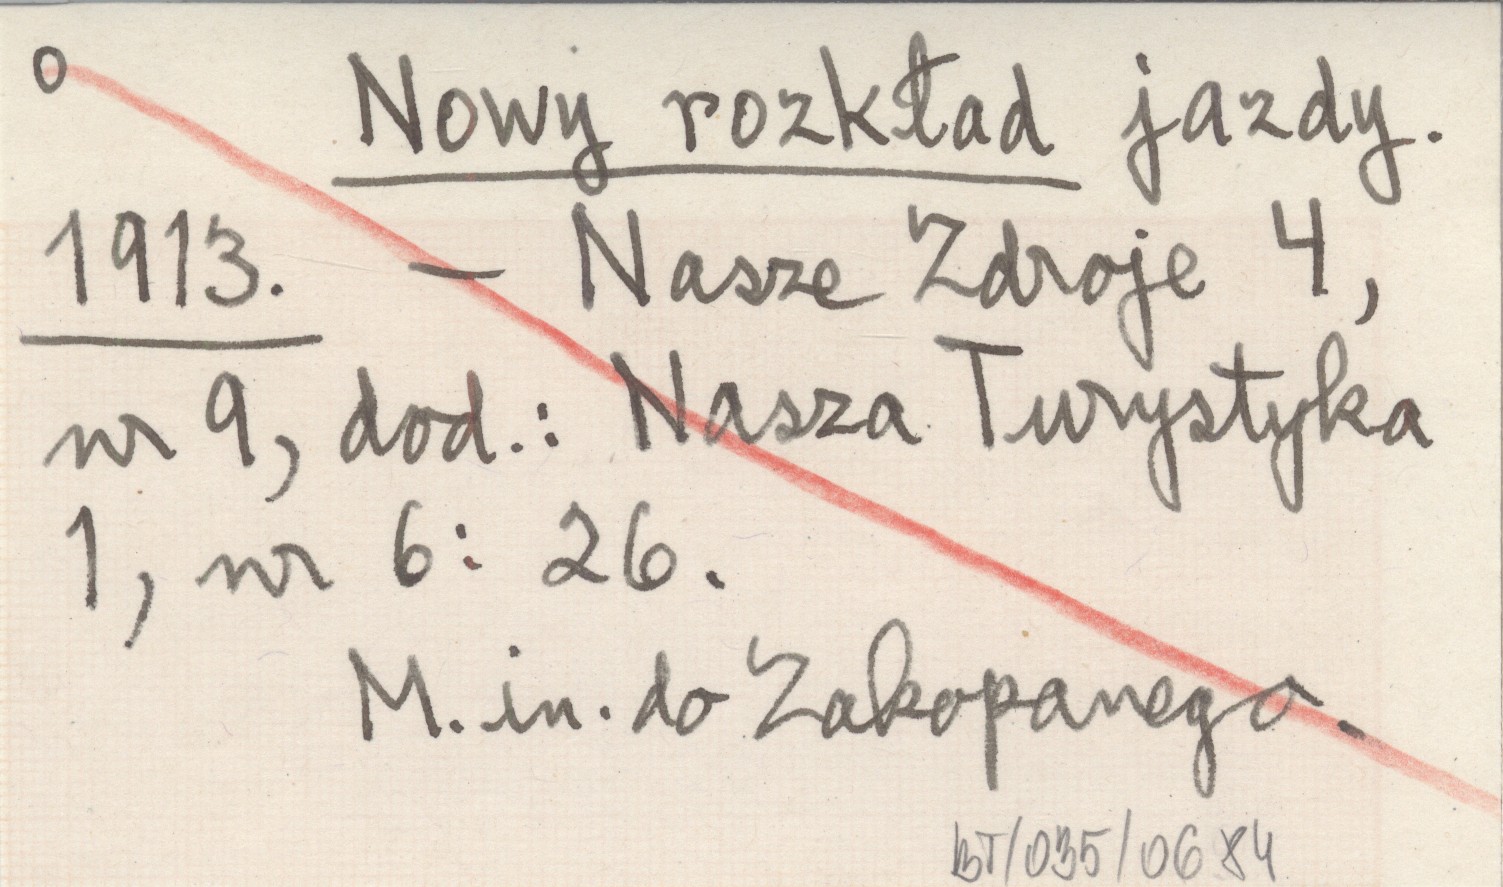 o Nowy rozkład jazdy.
1913. — Nasze Zdroje 4,
nr 9, dod.: Nasza Turystyka
1, nr 6: 26.
M. in. do Zakopanego.
BT/035/0684